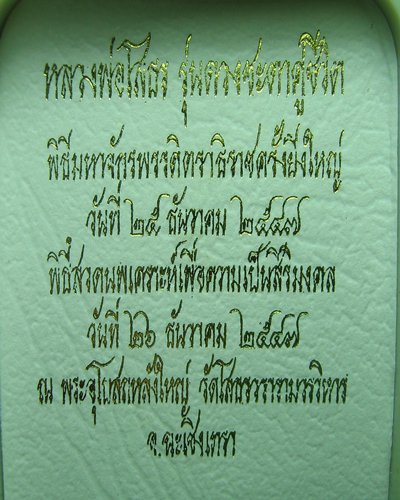 หลวงพ่อโสธร รุ่นดวงชะตาคู่ชีวิต
พิธีมหาจักรพรรดิตราธิราชครั้งยิ่งใหญ่
วันที่ ๒๕ ธันวาคม ๒๕๔๗
พิธีสวดนพเคราะห์เพื่อความเป็นสิริมงคล
วันที่ ๒๖ ธันวาคม ๒๕๔๗
ณ พระอุโบสถหลังใหญ่ วัดโสธรวรารามวรวิหาร
จ.ฉะเชิงเทรา